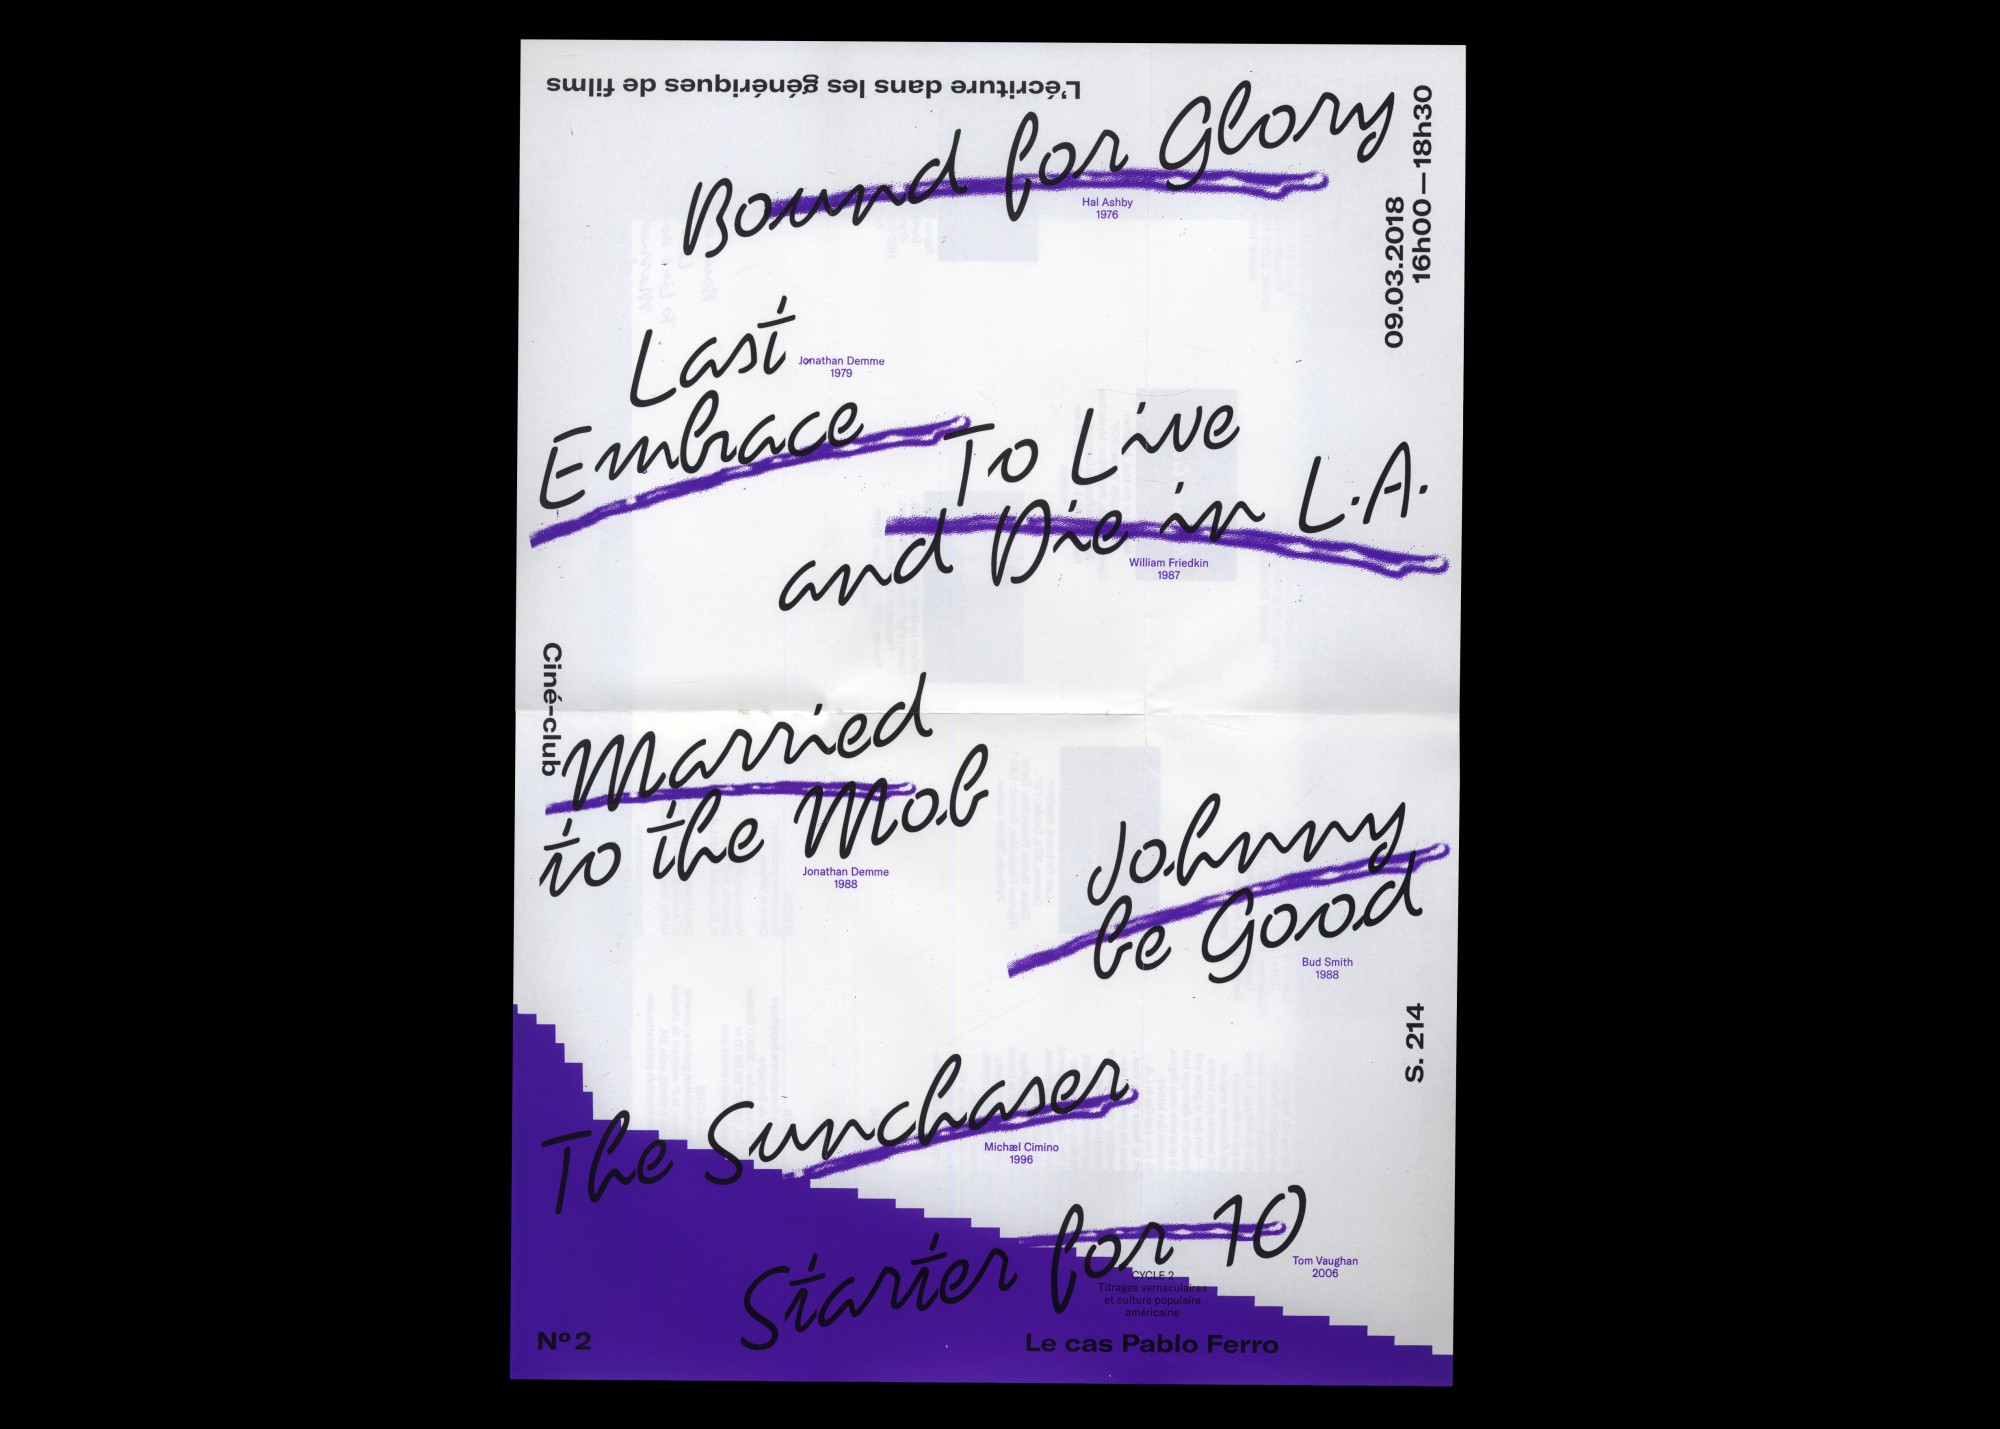 L'écriture dans les génériques de films
09.03.2018
16h00—18h30
Bound for Glory
Hal Ashby
1976
Last
Embrace
Jonathan Demme
1979
To Live
and Die in L.A.
William Friedkin
1987
Ciné-club
Married
to the Mob
Jonathan Demme
1988
Johnny
be Good
Bud Smith
1988
S. 214
The Sunchaser
Michæl Cimino
1996
Starter for 10
Tom Vaughan
2006
CYCLE 2
Titrages vernaculaires
et culture populaire
américaine
Nº2
Le cas Pablo Ferro